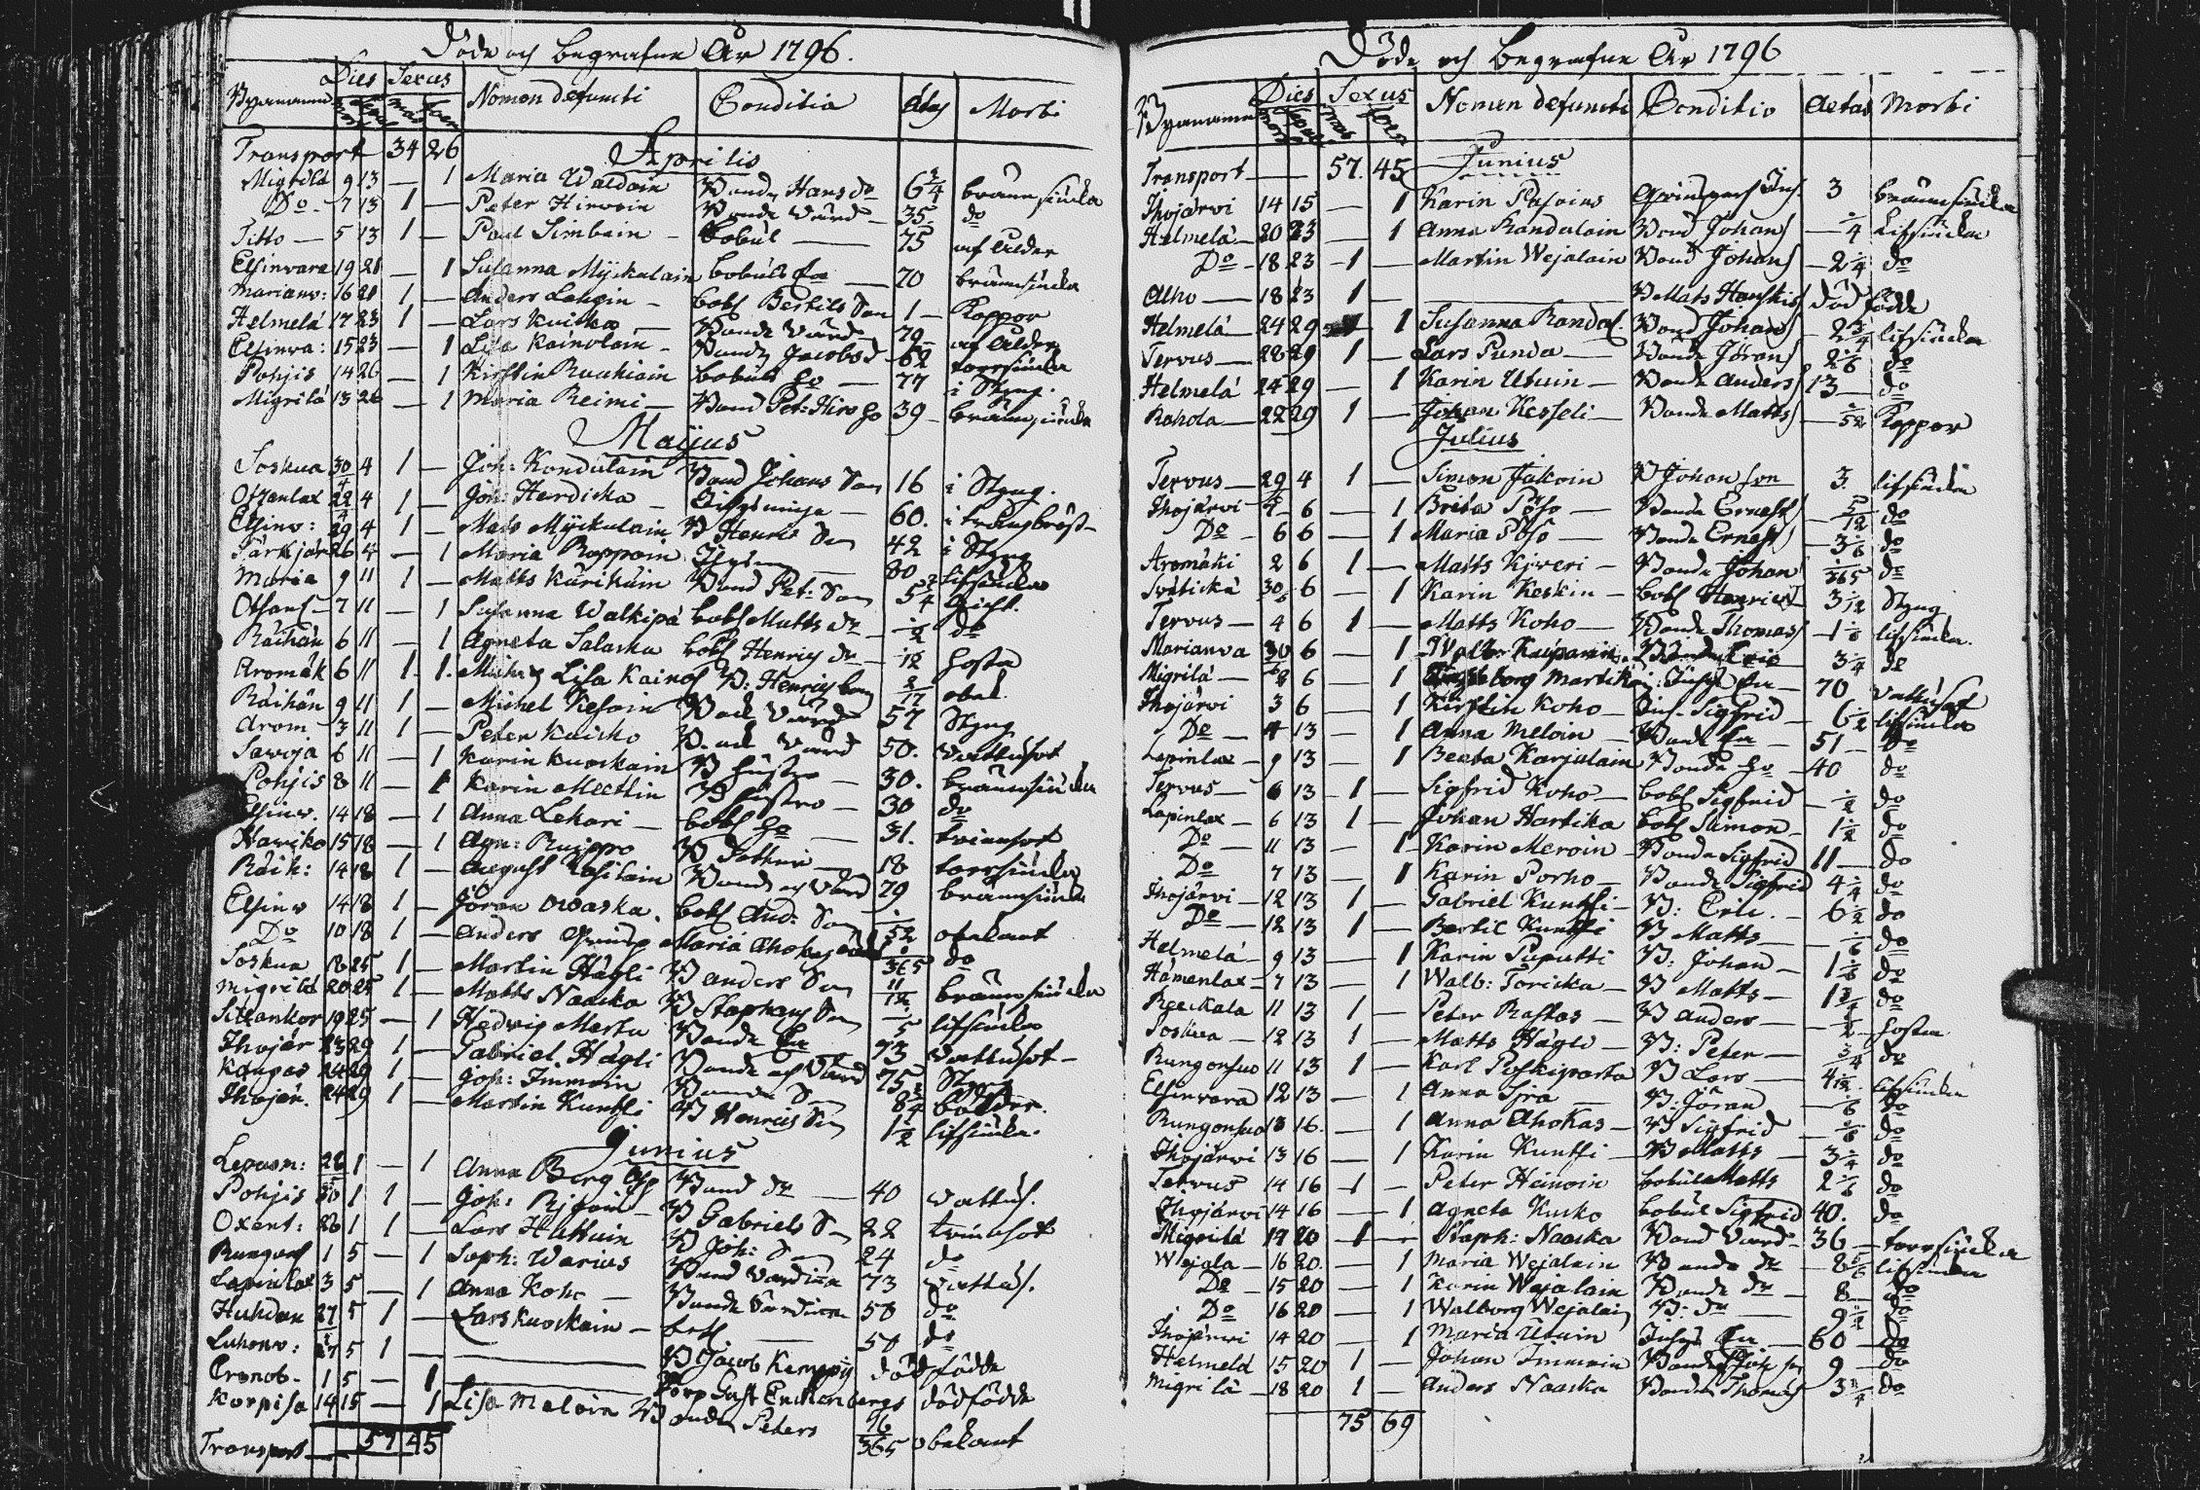 Döde och begrafne År 1796.
Dies Sexus
Bynamnn Nomen defuncti Conditio Ætas Morbi
Transport 34 26 Aprilis
Migrilä 9 13 — 1 Maria Waldain Bonde Hans dr 6 3/4 brännsiuka
Do 7 13 1 — Peter Hirvoin Bonde Värd 35 do
Titto 5 13 1 — Paul Simbain Bobül 75 af ålder
Elsinvara 19 21 — 1 Susanna Myckulain bobüls Ea 70 brännsiuka
Marianv: 16 21 1 — Anders Laugin bobl Bertils Son 1 Koppor
Helmelä 17 23 1 — Lars Kuisko Bonde Värd 79 af ålder
Elsinva: 15 23 — 1 Lisa Kainolain Bonde Jacobs d 62 torrsiuka
Pohjis 14 26 — 1 Kirstin Ruuhiain bobüls ho 77 i Styng.
Migrilä 13 26 — 1 Maria Reimi Bond Pet: Hirv ho 39 brännsiuka
Majus
Soskua 30/4 4 1 — Joh: Kondulain Bond Johans Son 16 i Styng.
Oxenlax 22/4 4 1 — Joh: Hardicka 60. i trångbröst
Elsinv: 29 4 1 — Mats Myckulain B Henrics Son 42 i Styng
Särkjär 26 4 — 1 Maria Roppoin 80 lifsiuka
Maria 9 11 1 — Matts Kärikäin Bond Pet: Son 5 3/4 Gicht.
Otsans 7 11 — 1 Susanna Walkipä bobl Matts dr 1/2 do
Räihän 6 11 — 1 Agneta Salaska bobl Henrics dr 1/12 hosta
Aromäk 6 11 1. 1. Mich: & Lisa Kainol B: Henrics barn 2/17 obek.
Räihän 9 11 1 — Michel Kesoin Bond Värd 57 Styng
Arom 3 11 1 — Peter Kaisko Bond Värd 50. Vattusot
Savoja 6 11 — 1 Karin Kuoskain B hustro 30. brännsiuka
Pohjis 8 11 — 1 Karin Meetlin B hustro 30 do
Elsinv. 14 18 — 1 Anna Lekari bobl ho 31. tvinsot
Haviko 15 18 — 1 Agn: Ruippo B Dotter 18 torrsiuka
Räih: 14 18 1 — August Kositain Bonde af Värd 79 brännsiuka
Elsinv 14 18 1 — Jöran Owaska bobl And: Son 1/52 obekant
Do 10 18 1 — Anders Maria Ahokas 365 do
Soskua 18 25 1 — Martin Hägli B anders Son 11/12 brännsiuka
Migrilä 20 25 1 — Matts Naaska B Staphans Son 1/5 lifsiuka
Sillankor 19 25 — 1 Hedwig Marta Bonde Ea 73 Vattusot
Ihojär 23 29 1 — Gabriel Hägli Bonde af Värd 75 Styng
Kangas 24 29 1 — Joh: Immoin Bonde Son 8 3/4 bölder.
Ihojär. 24 29 1 — Martin Kuntsi B Henrics Son 1 1/2 lifsiuka.
Junius
Lepasn: 28/5 1 — 1 Anna Berg Bond dr 40 Vattus.
Pohjis 30 1 1 — Joh: B Gabriels Son 22 tvinsot
Oxent: 26 1 1 — Lars Hattuin B Joh: Son 24 do
Rungons 1 5 — 1 Soph: Warius Bond Värdinna 73 Vattus.
Lapinlax 3 5 — 1 Anna Koho Bonde Värdinna 50 do
Huhdan 27 5 1 — Lars Kuoskain bobl 50 do
Luhonv: 27 5 1 — B Jacob Kamppi dödfödde
Cronob. 1 5 — 1 Torp Gust Enckenbergs dödfödde
Korpisa 14 15 — 1 Lisa Meloin Bonde Peters 16/365 obekant
Transport 57 45

Döde och begrafne År 1796
Dies Sexus
Bynamnn Nomen defuncti Conditio Aetas Morbi
Transport 57. 45 Junius
Ihojärvi 14 15 — 1 Karin Pasoius 3 brännsiuka
Helmelä 20 23 — 1 Anna Kondulain Bond Johans 1/4 Lifsiuka
Do 18 23 1 — Martin Wejalain Bond Johans 2 1/4 do
Alho 18 23 1 — B Mats Hanskis död födde
Helmelä 24 29 — 1 Susanna Randal. Bond Johans 2 3/4 lifsiuka
Tervus 28 29 1 — Lars Punda Bonde Jörans 2 1/6 do
Helmelä 24 29 — 1 Karin Utuin Bonde Anders 13 do
Rahola 22 29 1 — Johan Kesseli Bonde Matts 1/52 Koppor
Julius
Tervus 29/6 4 1 — Simon Jakoin B Johan son 3. lifsiuka
Ihojärvi 4 6 — 1 Brita Pöso Bonde Ernest 5/12 do
Do 6 6 — 1 Maria Pöso Bonde Ernest 3 1/6 do
Aromäki 2 6 1 — Matts Kjveri Bonde Johan 1/365 do
Svätickä 30/6 6 — 1 Karin Keskin bobl Henrics 3 1/12 Styng
Tervus 4 6 1 — Matts Koho Bonde Thomas 1 1/6 lifsiuka.
Marianva 30/6 6 — 1 Walb: Kaiparin 3 1/4 do
Migrilä 8 6 — 1 Ingeborg Martikain 70 Vattusot
Ihojärvi 3 6 — 1 Kirstin Koho Sigfrid 6 1/2 lifsiuka
Do 4 13 — 1 Anna Meloin Bonde Ea 51 do
Lapinlax 9 13 — 1 Beata Karjalain Bonde ho 40 do
Tervus 6 13 1 — Sigfrid Koho bobl Sigfrid 1/2 do
Lapinlax 6 13 1 — Johan Hartika bobl Simon 1 1/2 do
Do 11 13 — 1 Karin Meroin Bonde Sigfrid 11 do
Do 7 13 — 1 Karin Porho Bonde Sigfrid 4 1/4 do
Ihojärvi 12 13 1 — Gabriel Kuntsi B: Eric. 6 1/2 do
Do 12 13 1 — Bertil Kuntsi B Matts 1/6 do
Helmelä 9 13 — 1 Karin Puputti B: Johan 1 1/6 do
Hämenlax 7 13 — 1 Walb: Toricka B Matts 1 1/2 do
Reeckala 11 13 1 — Peter Rastas B anders 1/2 hosta
Soskua 12 13 1 — Matts Hägli B: Peter 3/4 do
Rungonsuo 11 13 1 — Karl Poskiparta B Lars 4 1/12 lifsiuka
Elsinvara 12 13 — 1 Anna Sjra B: Jöran 1/6 do
Rungonsuo 13 16. — 1 Anna Ahokas B Sigfrid 1/6 do
Ihojärvi 13 16 — 1 Karin Kuntsi B Matts 3 1/4 do
Tervus 14 16 1 — Peter Heinoin bobüls Matts 2 1/6 do
Ihojärvi 14 16 — 1 Agneta Kusko bobül Sigfrid 40. do
Migrilä 17 20 1 — Staph: Naaska Bond Värd 36 torrsiuka
Wejala 16 20. — 1 Maria Wejalain Bonde dr 8 5/6 lifsiuka
Do 15 20 — 1 Karin Wejalain Bonde dr 8 do
Do 16 20 — 1 Walborg Wejalain B: dr 9 1/2 do
Ihojärvi 14 20 — 1 Maria Utuin Ea 60 do
Helmelä 15 20 1 — Johan Immoin Bonde Joh son 9 do
Migrilä 18 20 1 — Anders Naaska Bonde Thomas 3 1/4 do
75 69